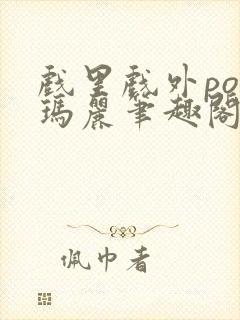 戲里戲外po
瑪麗筆趣閣
佩巾者